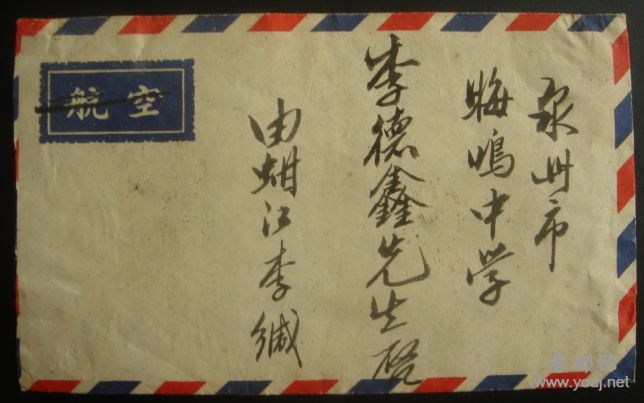 泉州市
晦鳴中学
李德鑫先生啓
由蚶江李缄
航空
www.ycaj.net